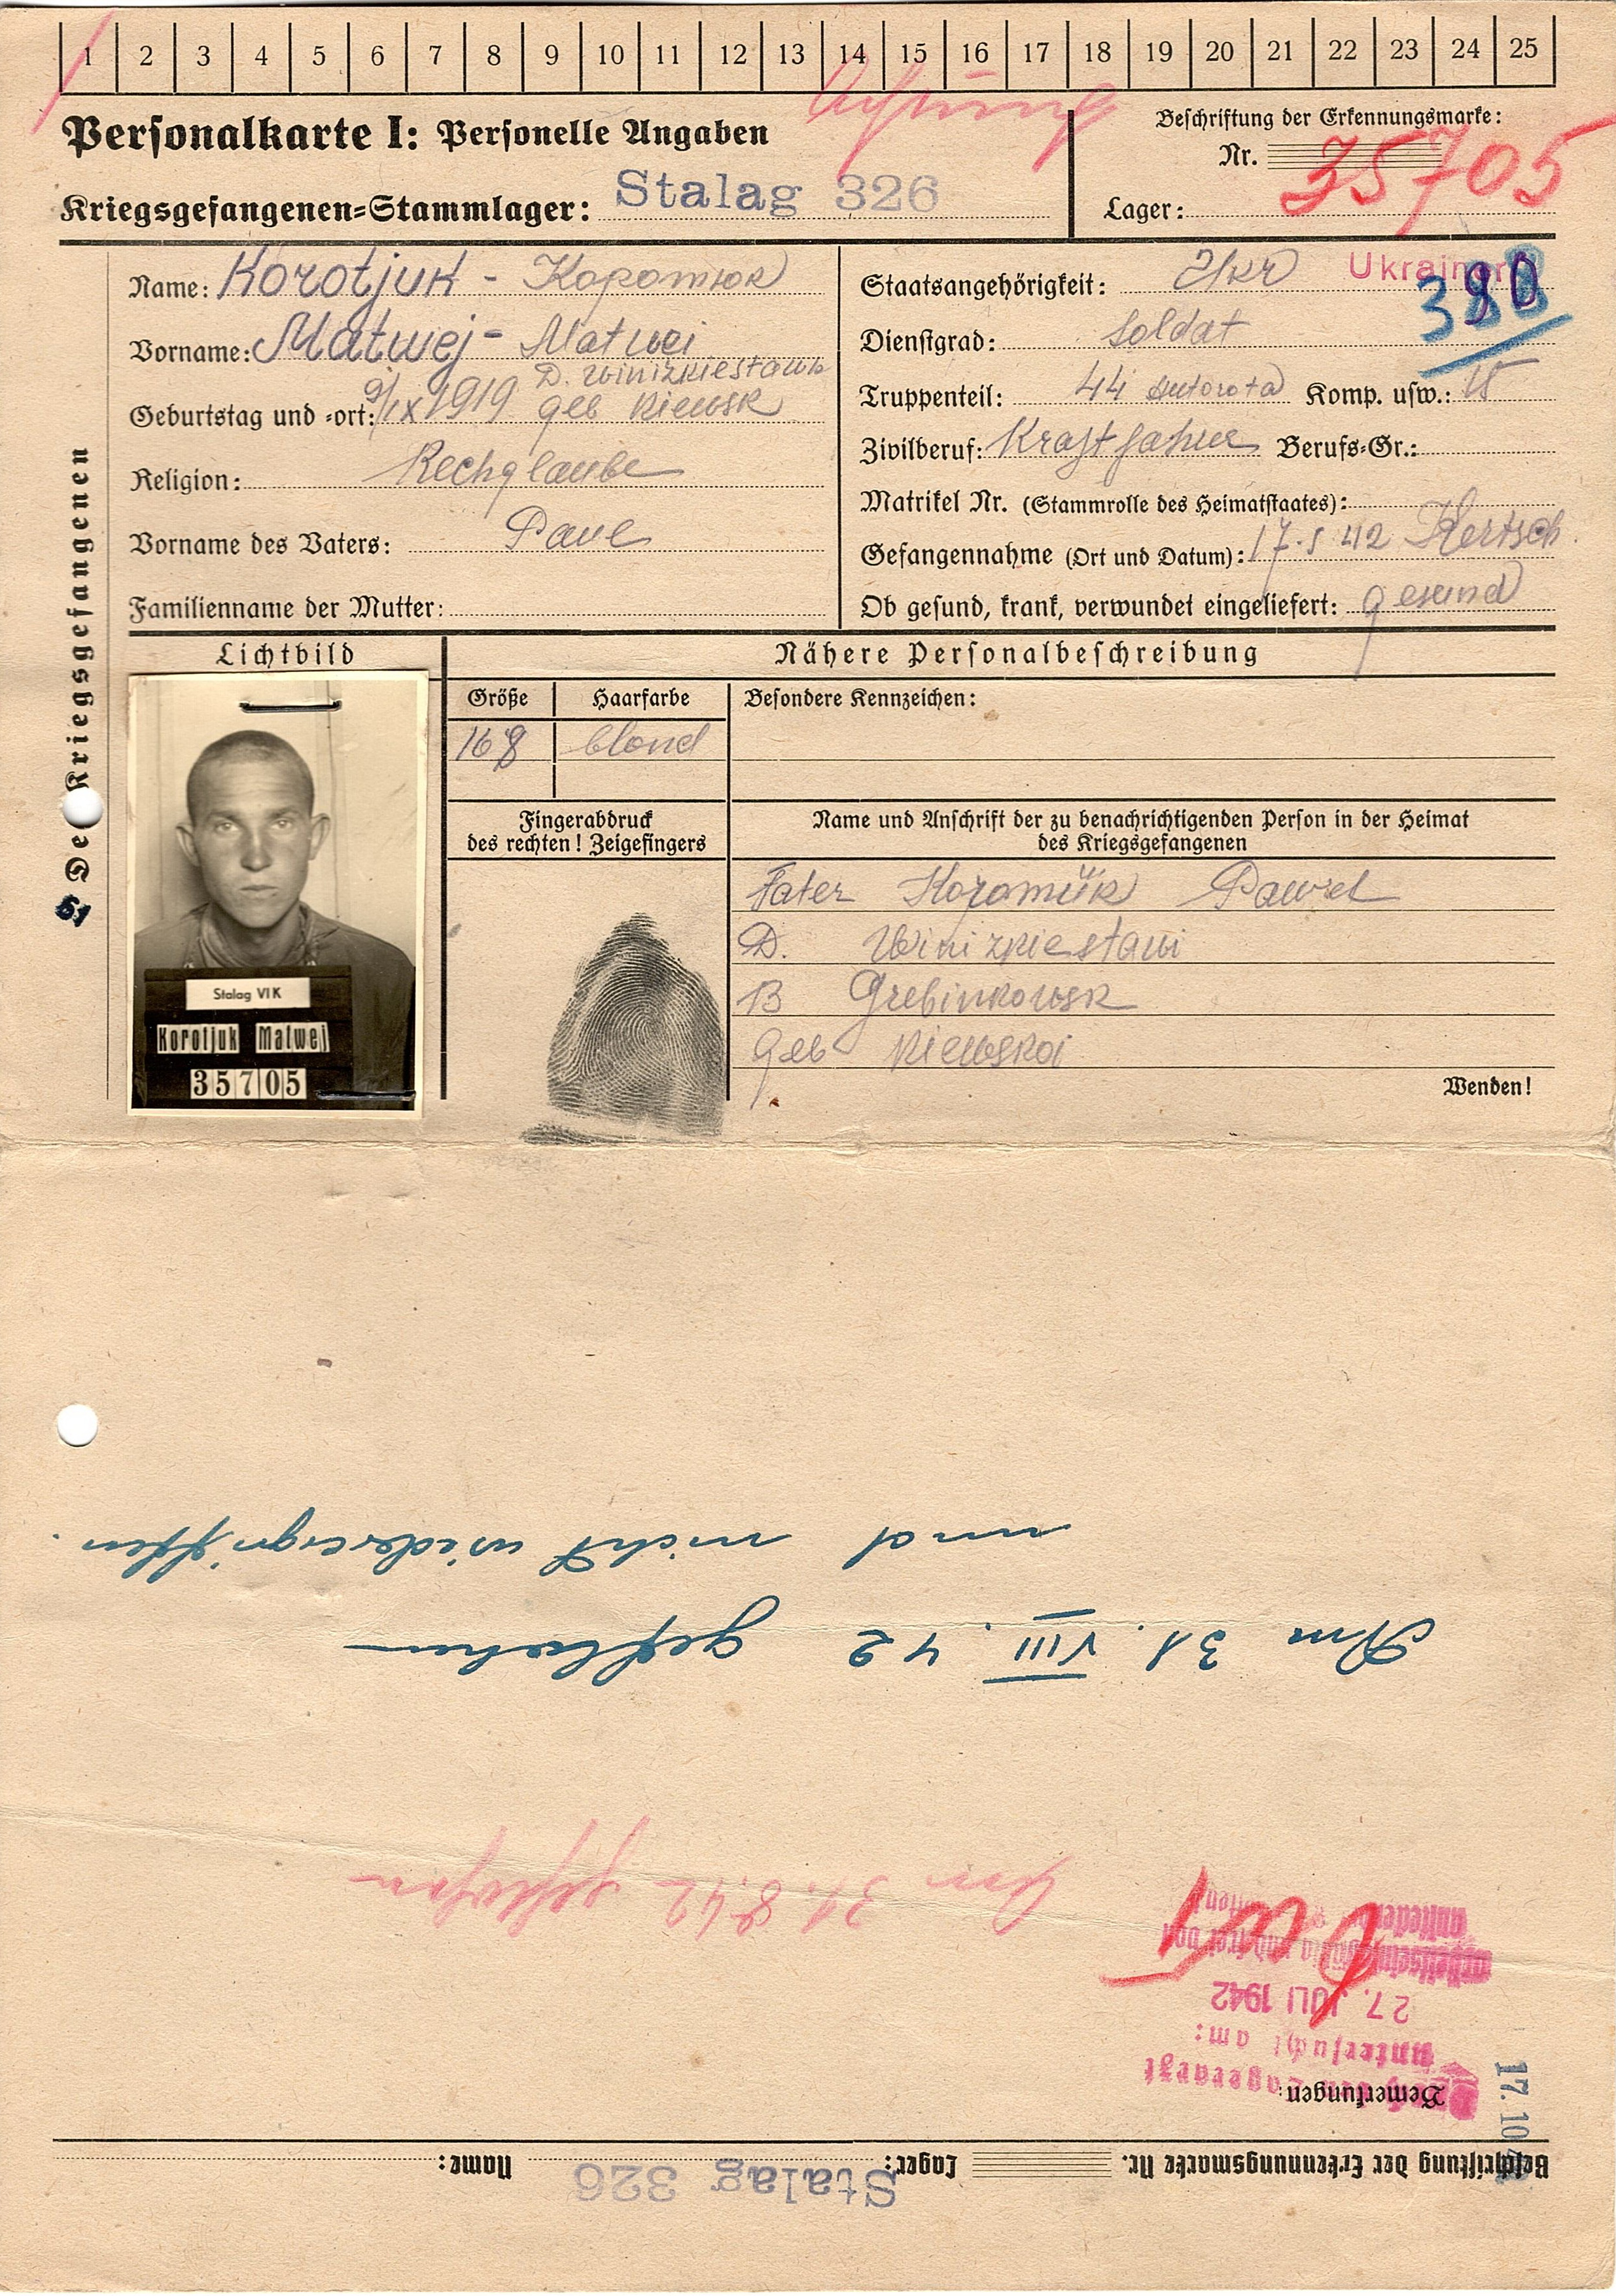 1 2 3 4 5 6 7 8 9 10 11 12 13 14 15 16 17 18 19 20 21 22 23 24 25
Achtung
Personalkarte I: Personelle Angaben
Beschriftung der Erkennungsmarke:
Nr. 35705
Kriegsgefangenen-Stammlager: Stalag 326
Lager:
Des Kriegsgefangenen
51
Name: Korotjuk - Коротюк
Vorname: Matwej - Matwei
D. Winizkiestawi
Geburtstag und -ort: 9/IX 1919 geb Kiewsk
Religion: Rechglaube
Vorname des Vaters: Pavel
Familienname der Mutter:
Staatsangehörigkeit: Ukr Ukrainer
Dienstgrad: Soldat
Truppenteil: 44 Autorota Komp. usw.: 15
Zivilberuf: Kraftfahrer Berufs-Gr.:
Matrikel Nr. (Stammrolle des Heimatstaates):
Gefangennahme (Ort und Datum): 17.5 42 Kertsch.
Ob gesund, krank, verwundet eingeliefert: gesund
Lichtbild
Nähere Personalbeschreibung
Größe Haarfarbe Besondere Kennzeichen:
168 blond
Fingerabdruck
des rechten! Zeigefingers
Name und Anschrift der zu benachrichtigenden Person in der Heimat
des Kriegsgefangenen
Fater Koromük Pawel
D. Winizkiestawi
B Grebinkowsk
geb Kiewskoi
Wenden!
Stalag VI K
Korotjuk Matwej
35705
Beschriftung der Erkennungsmarke Nr. Lager: Stalag 326 Name:
17. 10
Bemerkungen:
Lagerarzt
untersucht am:
27. JULI 1942
Am 31.8.42 geflohen
Am 31. VIII. 42 geflohen
und nicht widerergriffen.